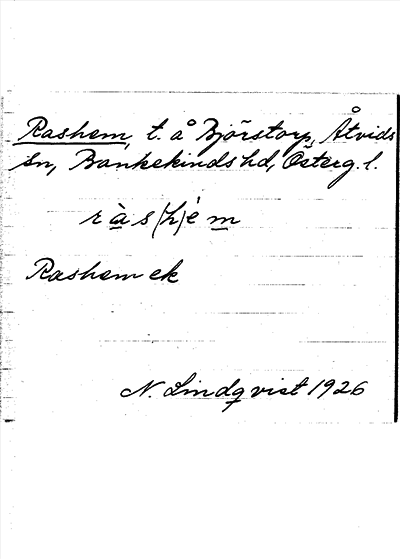 Rashem, t. å Björstorp, Åtvids
sn, Bankekinds hd, Österg. l.
r à s (h) é m
Rashem ek
N. Lindqvist 1926